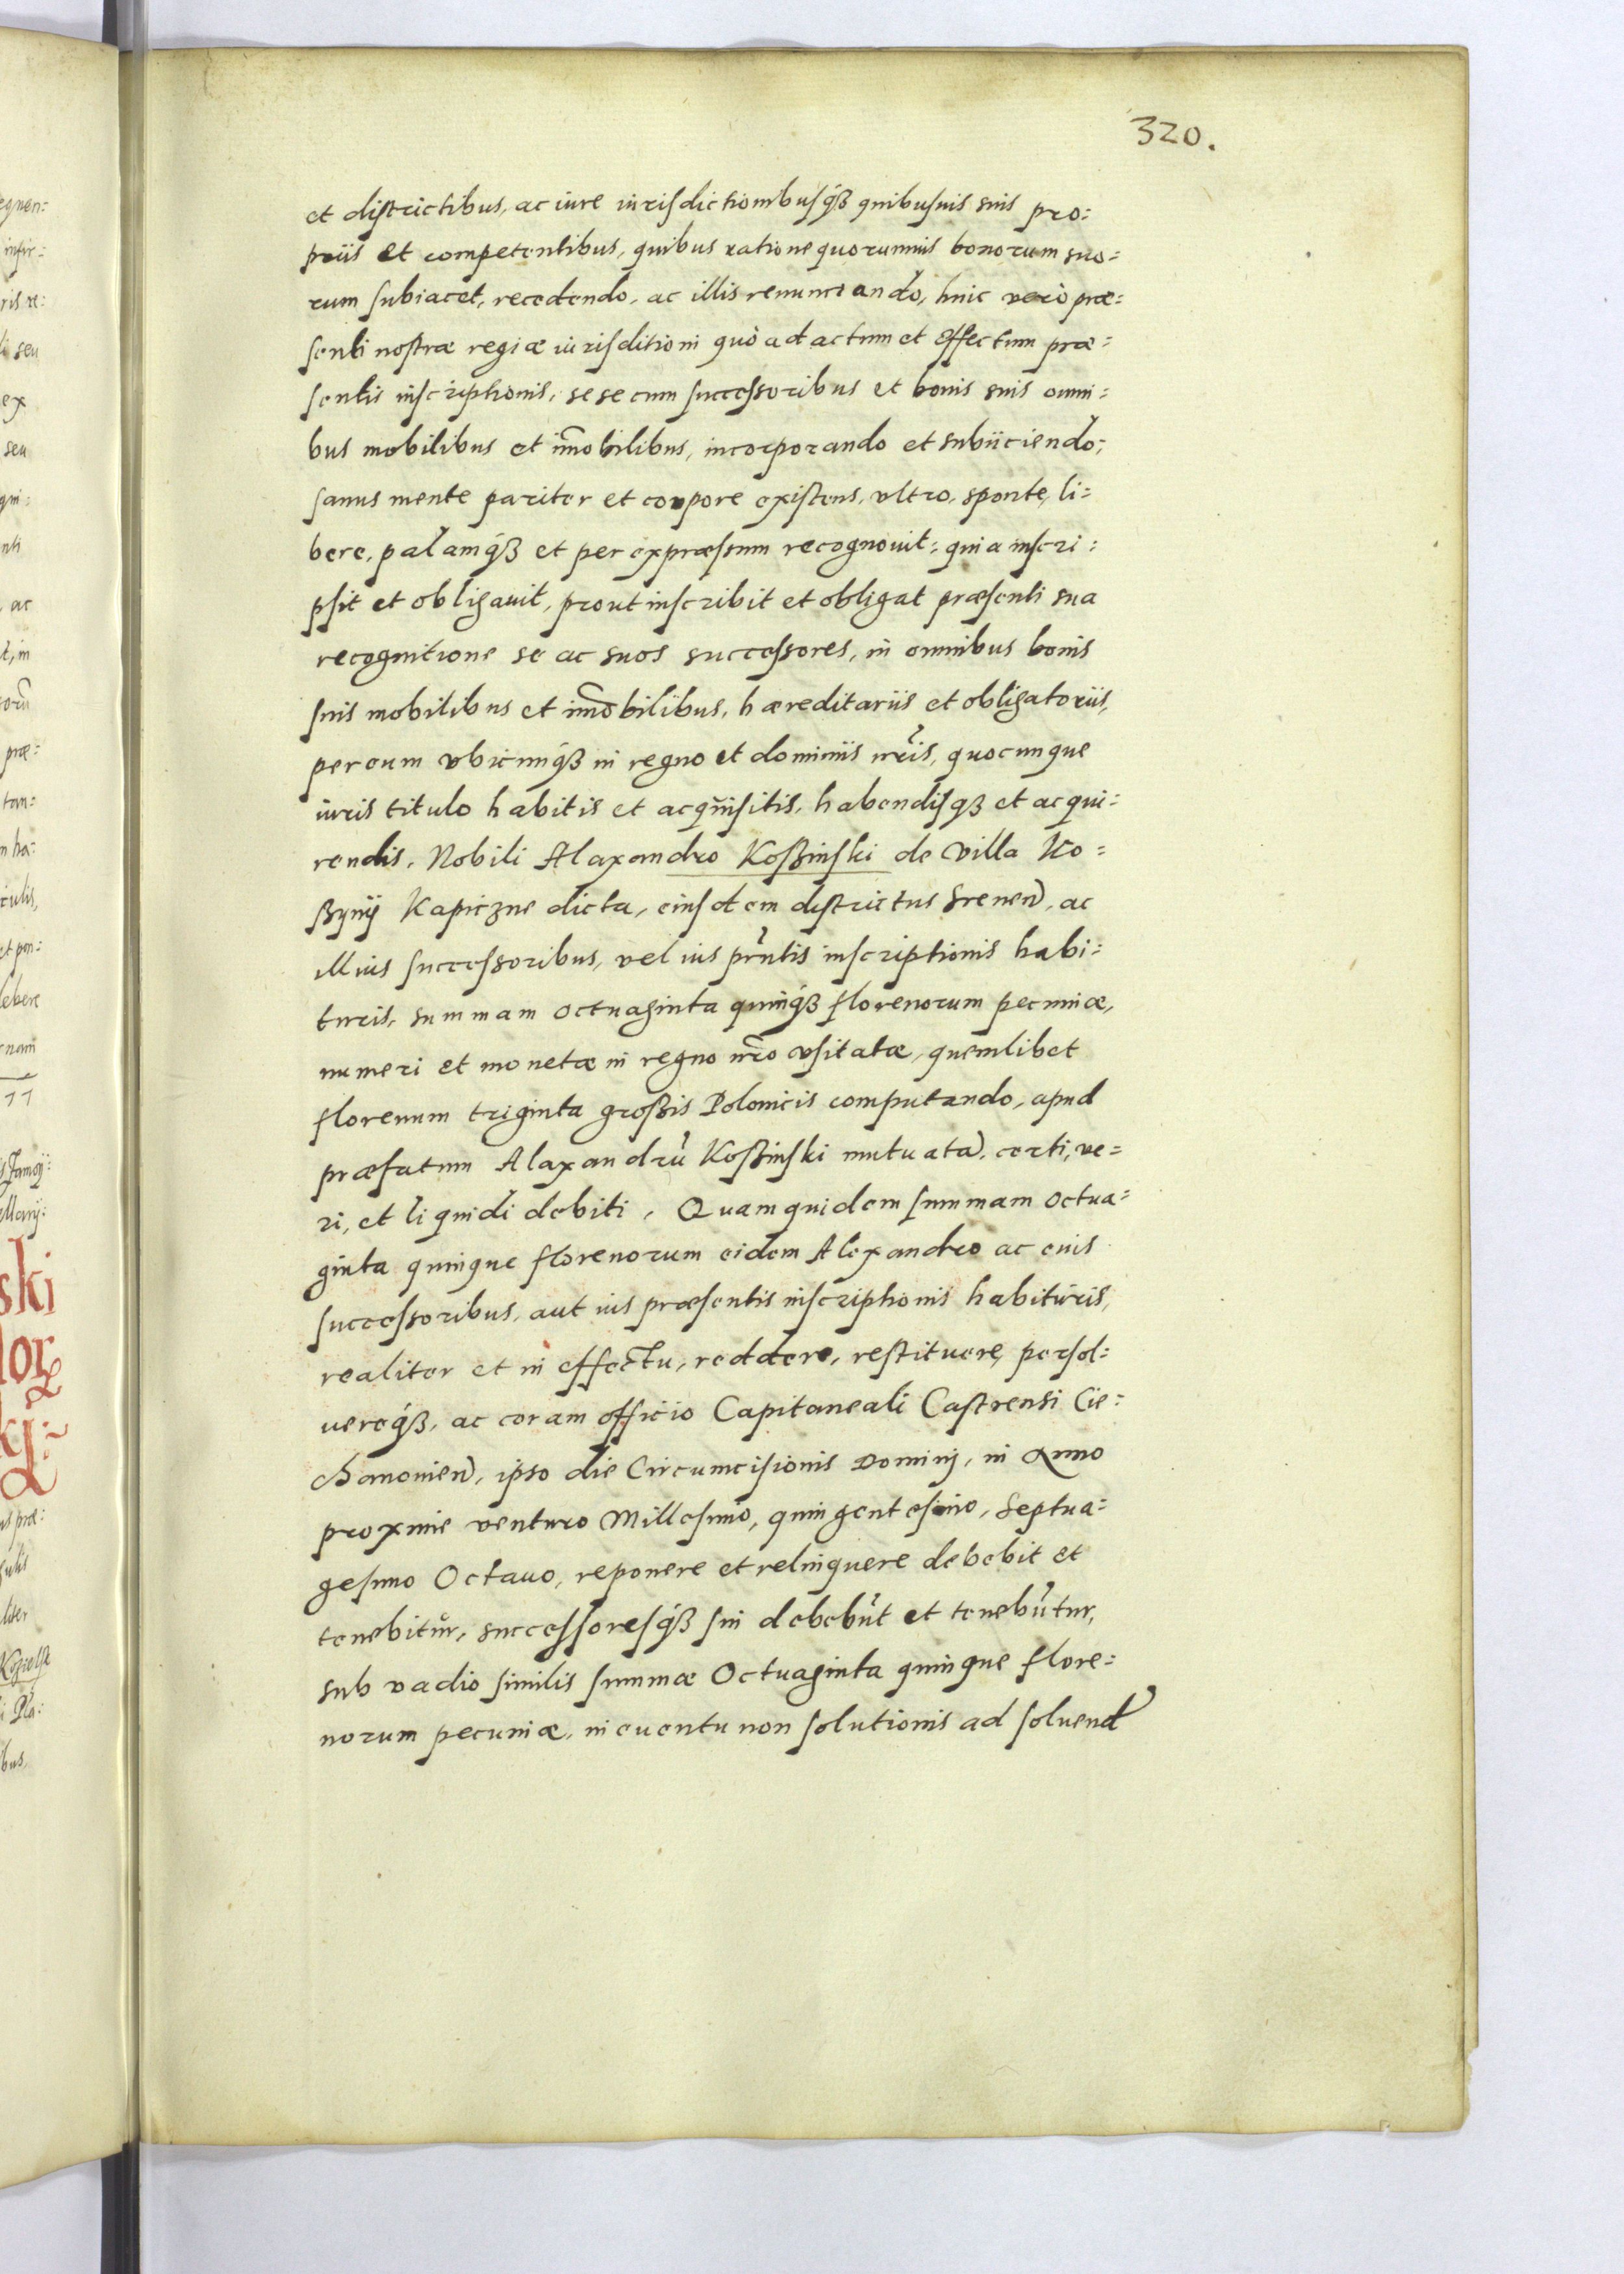 320.
et districtibus, ac iure iurisdictionibusq́ꝫ quibusuis suis pro:
priis et competentibus, quibus ratione quorumuis bonorum suo:
rum subiacet, recedendo, ac illis renunciando, huic verò præ:
senti nostræ regiæ iurisditioni quò ad actum et effectum præ:
sentis inscriptionis, sese cum successoribus et bonis suis omni:
bus mobilibus et im̃obilibus, incorporando et subiiciendo;
sanus mente pariter et corpore existens, vltro, sponte, li:
bere, palamq́ꝫ et per expræssum recognouit: quia inscri:
psit et obligauit, prout inscribit et obligat præsenti sua
recognitione se ac suos successores, in omnibus bonis
suis mobilibus et im̃obilibus, hæreditariis et obligatoriis,
per eum vbicunq́ꝫ in regno et dominiis nr̃is, quocunque
iuris titulo habitis et acquisitis, habendisqꝫ et acqui:
rendis, Nobili Alaxandro Koßinski de villa Ko:
ßynÿ Kapiczne dicta, eiusdem districtus Srenen̄, ac
illius successoribus, vel ius pr̃ntis inscriptionis habi:
turis, summam octuaginta quinq́ꝫ florenorum pecuniæ,
numeri et monetæ in regno nr̃o vsitatæ, quemlibet
florenum triginta großis Polonicis computando, apud
præfatum Alaxandrū Koßinski mutuatā, certi, ve:
ri, et liquidi debiti, Quamquidem summam octua:
ginta quinque florenorum eidem Alexandro ac eius
successoribus, aut ius præsentis inscriptionis habituris,
realiter et in effectu, reddere, restituere, persol:
uereq́ꝫ, ac coram officio Capitaneali Castrensi Cie:
chanonien̄, ipso die Circumcisionis Dominj, in Anno
proxime venturo Millesimo, quingentesimo, Septua:
gesimo Octauo, reponere et relinquere debebit et
tenebitur, successoresq́ꝫ sui debebūt et tenebūtur,
sub vadio similis summæ Octuaginta quinque flore:
norum pecuniæ, in euentu non solutionis ad soluend̄